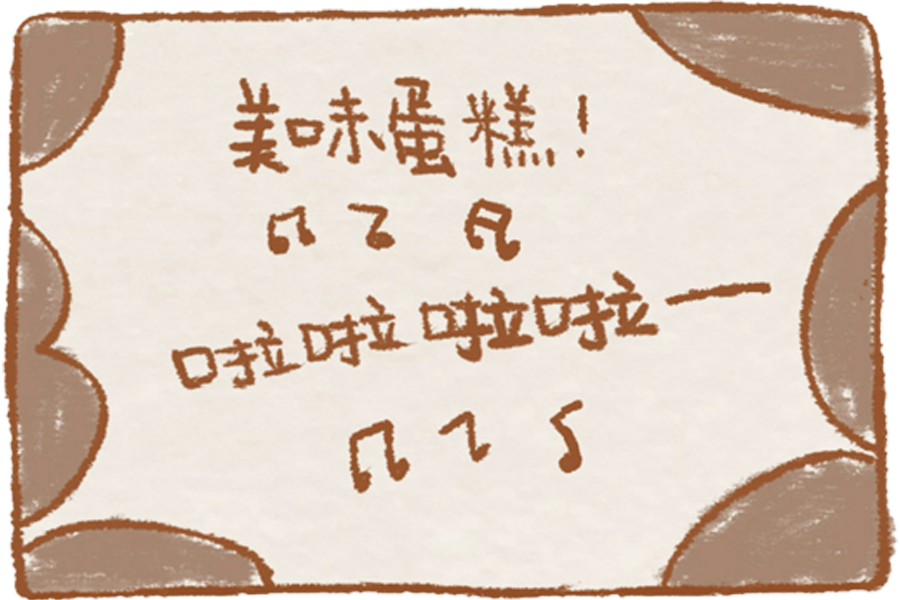 美味蛋糕！
啦啦啦啦一